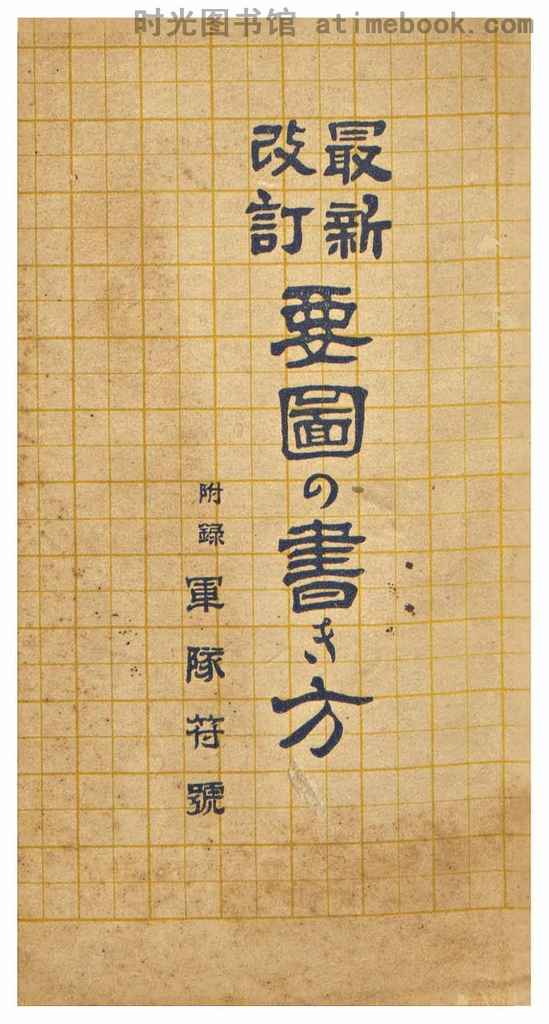 时光图书馆 atimebook.com
最新
改訂
要圖の書き方
附錄 軍隊符號